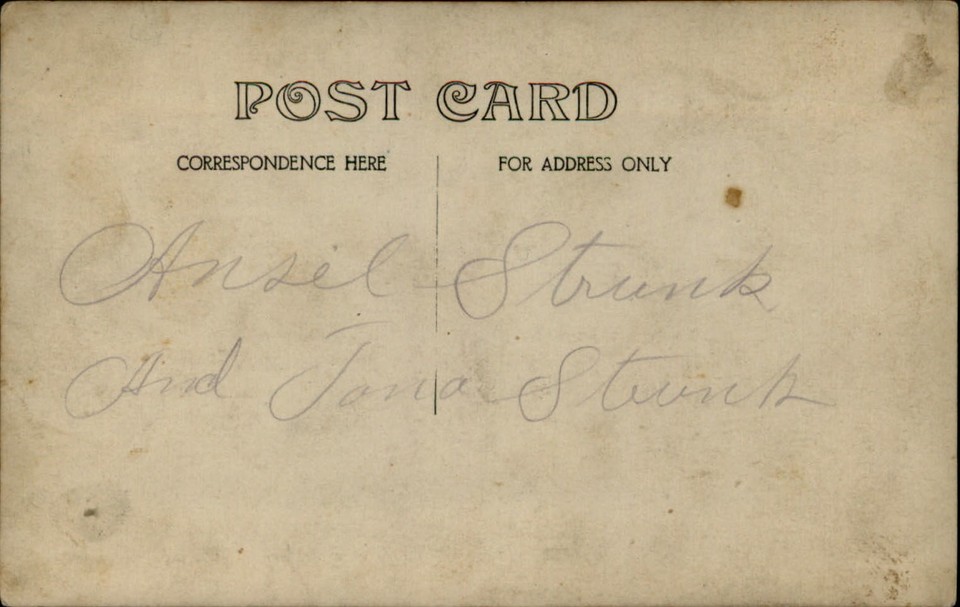 POST CARD
CORRESPONDENCE HERE
FOR ADDRESS ONLY
Ansel Strunk
And Jona Strunk